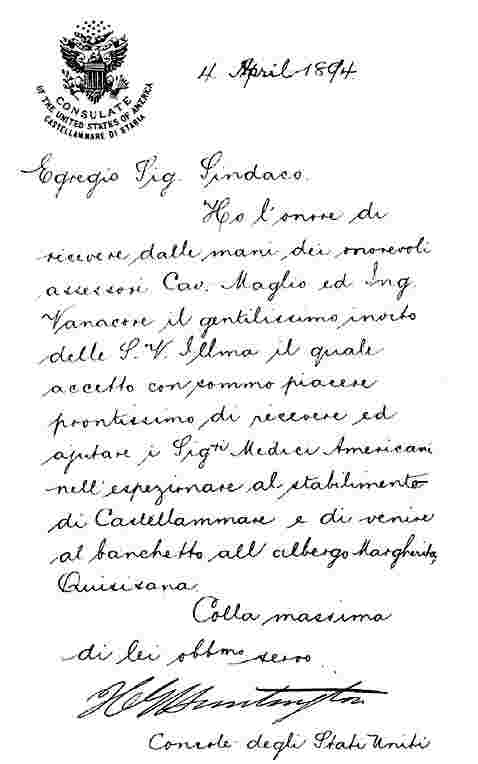 CONSULATE
OF THE UNITED STATES OF AMERICA
CASTELLAMMARE DI STABIA
4 April 1894
Egregio Sig. Sindaco.
Ho l'onore di
ricevere dalle mani dei onorevoli
assessori Cav. Maglio ed Ing.
Vanacore il gentilissimo invito
delle S.V. Illma il quale
accetto con sommo piacere
prontissimo di ricevere ed
ajutare i Sigri Medici Americani
nell'espezionare al stabilimento
di Castellammare e di venire
al banchetto all'albergo Margherita,
Quisisana.
Colla massima
di lei obbmo servo
H G Huntington
Console degli Stati Uniti